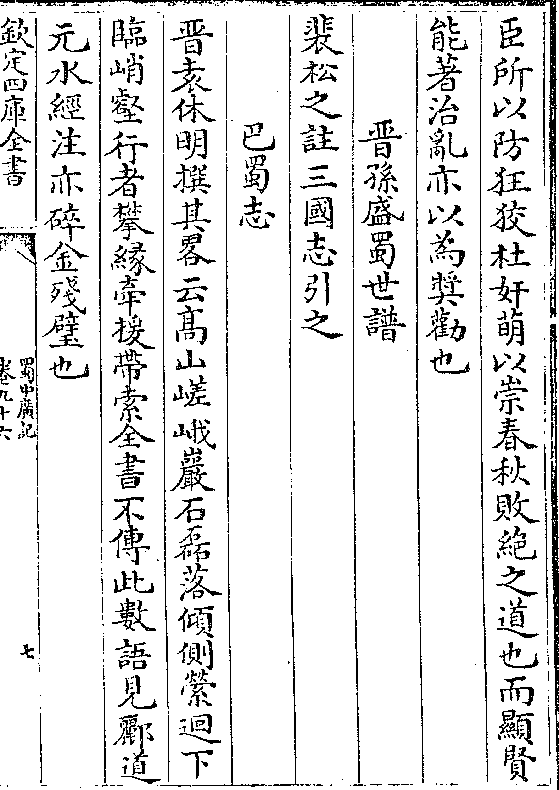 臣所以防狂狡杜奸萌以崇春秋敗絶之道也而顯賢
能著治亂亦以為奬勸也
晋孫盛蜀世譜
裴松之註三國志引之
巴蜀志
晋袁休明撰其畧云髙山嵯峨巖石磊落傾側縈迴下
臨峭壑行者攀緣牽援帶索全書不傳此數語見酈道
元水經注亦碎金殘璧也
欽定四庫全書
蜀中廣記
卷九十六
七